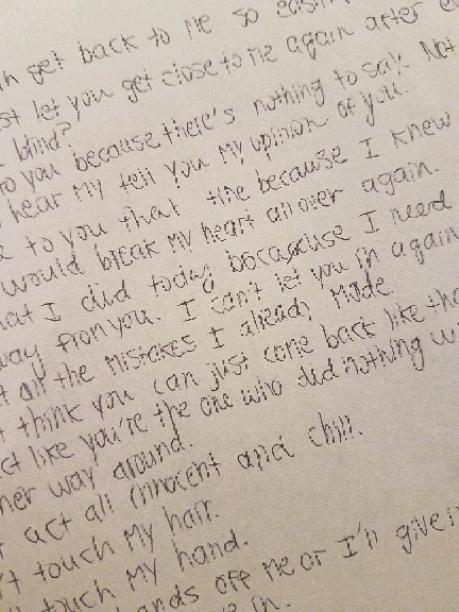 get back to me so easily
let you get close to me again after
blind?
to you because there's nothing to say. Not
hear my tell you my opinion of you.
to you that time because I knew
would break my heart all over again.
I did today because I need
away from you. I can't let you in again
all the mistakes I already made
think you can just come back like that
act like you're the one who did nothing
way around.
act all innocent and chill.
touch my hair.
touch my hand.
hands off me or I'll give in
in.